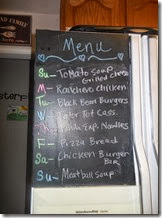 Menu
Su- Tomato Soup
Grilled Cheese
M- Ranchero Chicken
Tu- Black Bean Burgers
W- Tater Tot Cass.
Noodles
F- Pizza Bread
Sa- Chicken Burger
Bar
Su- Meatball Soup